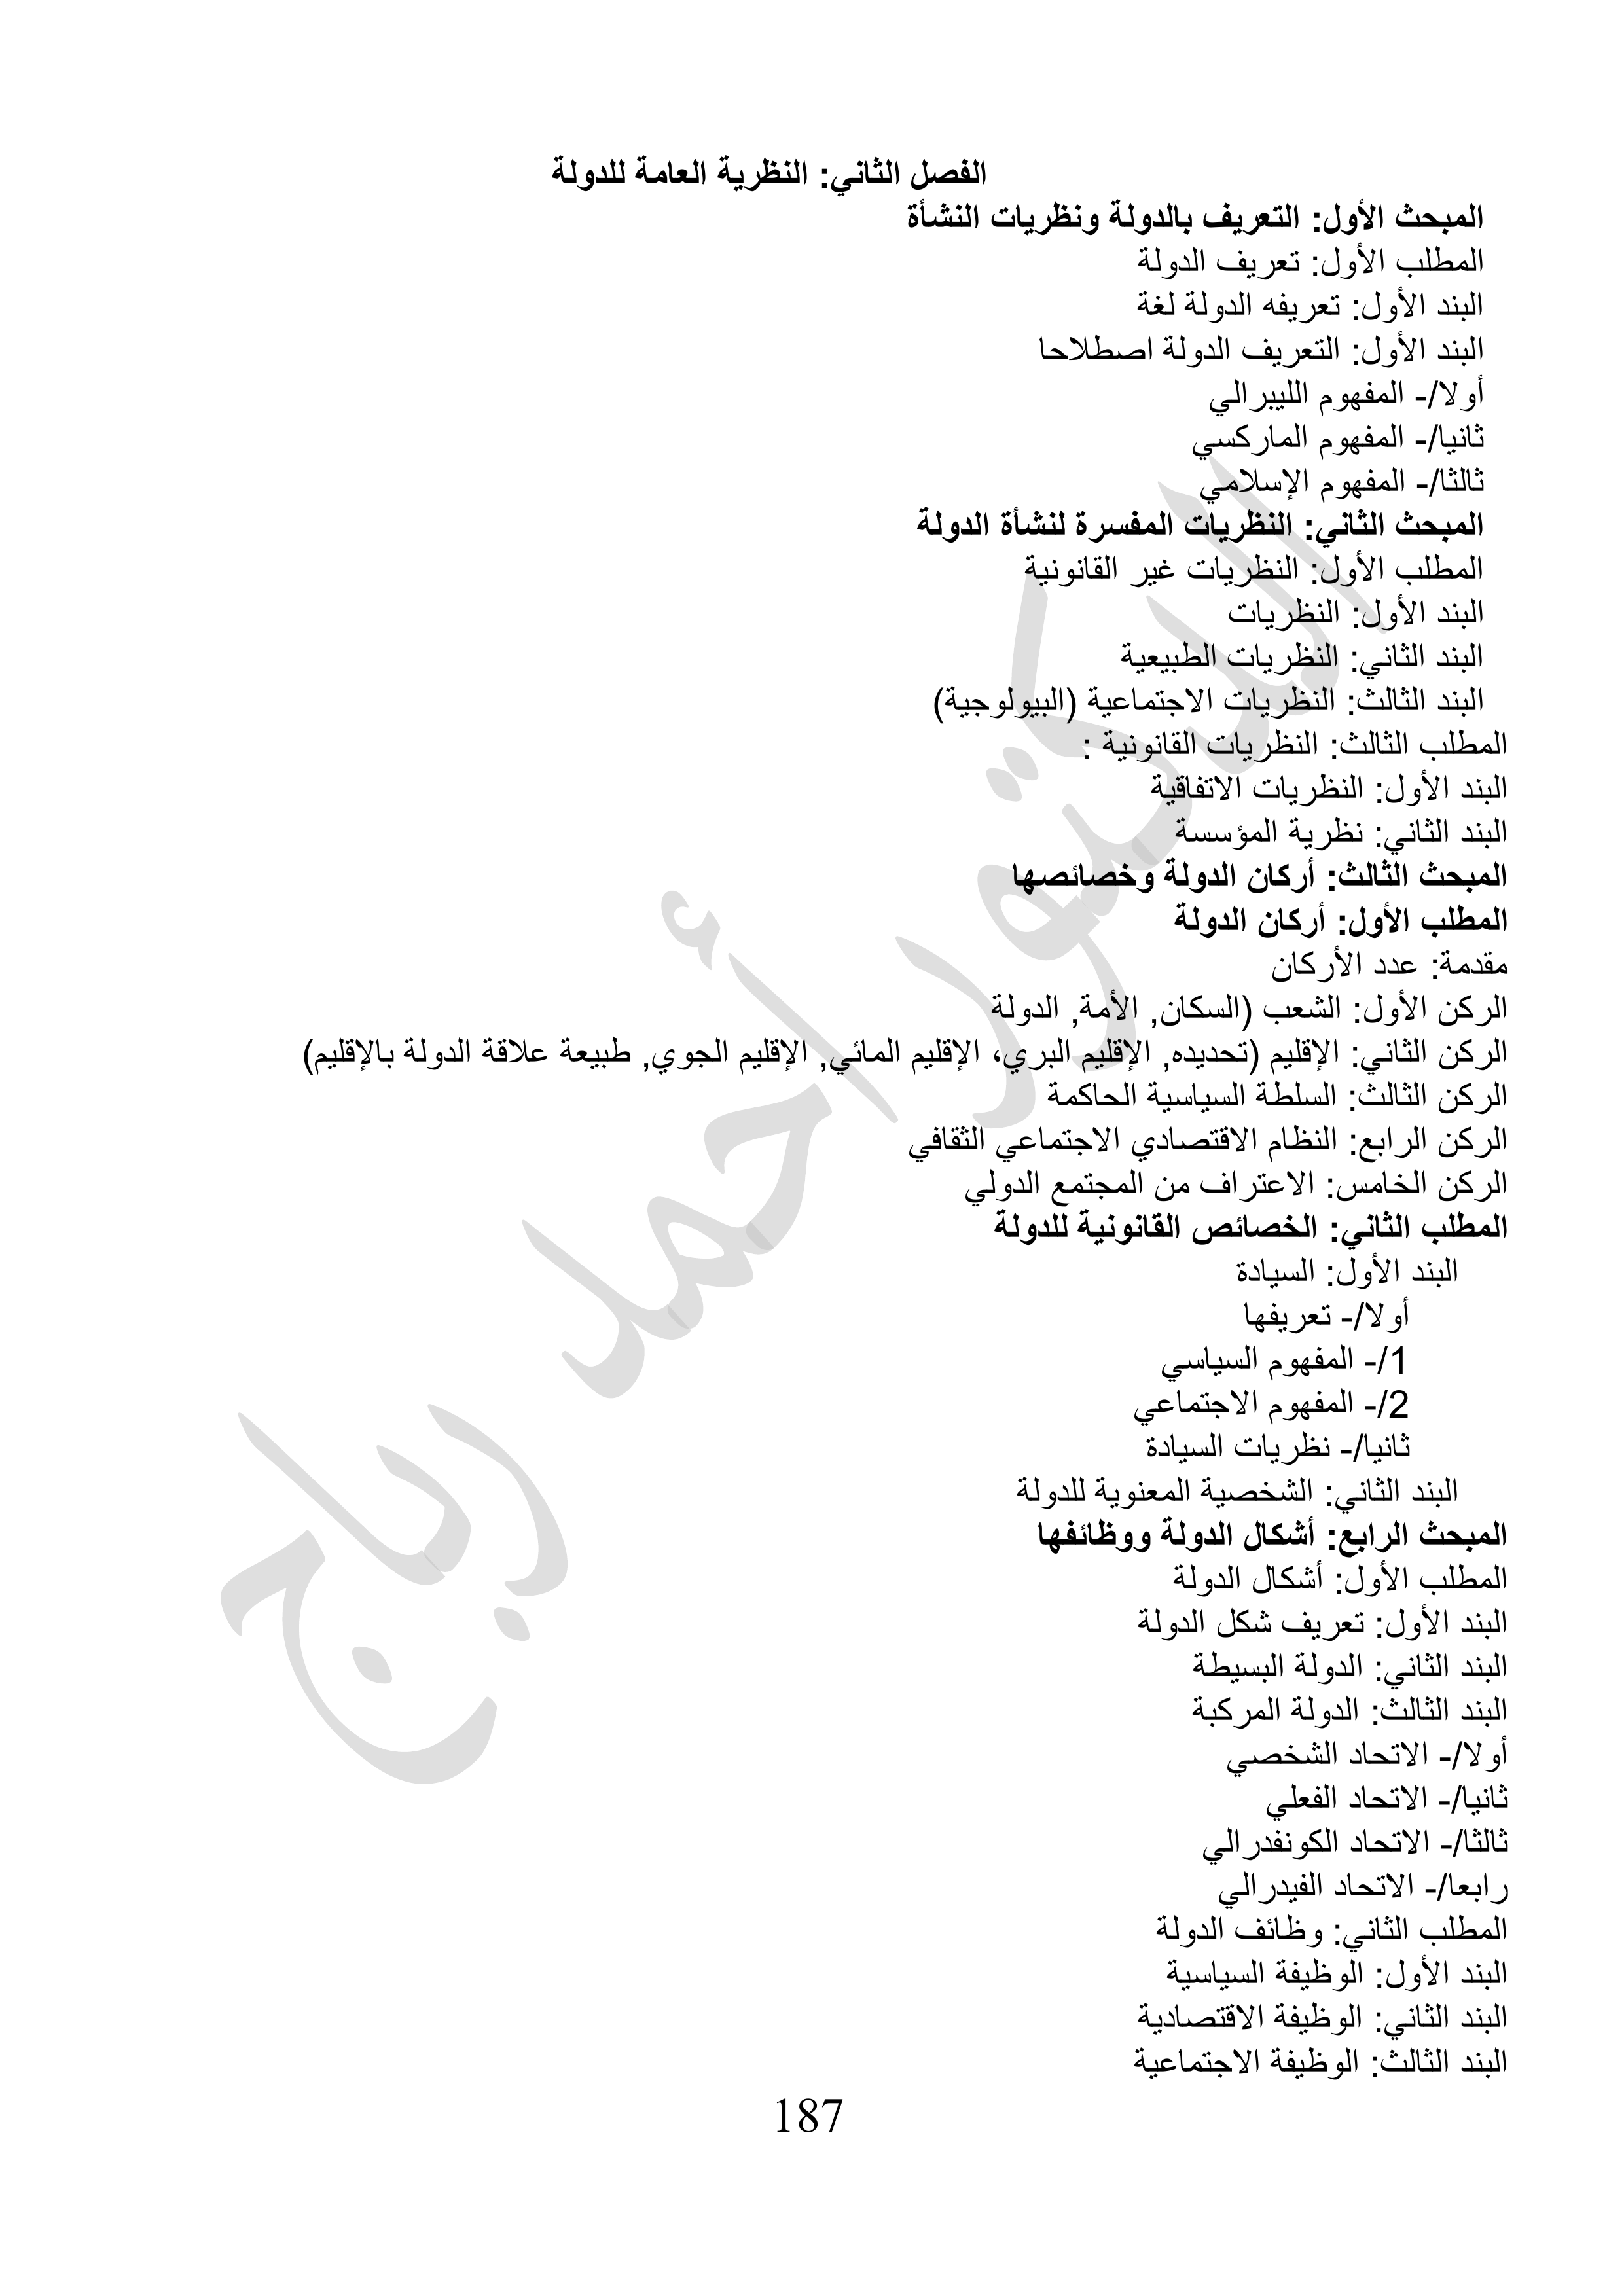 الفصل الثاني: النظرية العامة للدولة
المبحث الأول: التعريف بالدولة ونظريات النشأة
المطلب الأول: تعريف الدولة
البند الأول: تعريفه الدولة لغة
البند الأول: التعريف الدولة اصطلاحا
أولا/- المفهوم الليبرالي
ثانيا/- المفهوم الماركسي
ثالثا/- المفهوم الإسلامي
المبحث الثاني: النظريات المفسرة لنشأة الدولة
المطلب الأول: النظريات غير القانونية
البند الأول: النظريات
البند الثاني: النظريات الطبيعية
البند الثالث: النظريات الاجتماعية (البيولوجية)
المطلب الثالث: النظريات القانونية :
البند الأول: النظريات الاتفاقية
البند الثاني: نظرية المؤسسة
المبحث الثالث: أركان الدولة وخصائصها
المطلب الأول: أركان الدولة
مقدمة: عدد الأركان
الركن الأول: الشعب (السكان, الأمة, الدولة
الركن الثاني: الإقليم (تحديده, الإقليم البري، الإقليم المائي, الإقليم الجوي, طبيعة علاقة الدولة بالإقليم)
الركن الثالث: السلطة السياسية الحاكمة
الركن الرابع: النظام الاقتصادي الاجتماعي الثقافي
الركن الخامس: الاعتراف من المجتمع الدولي
المطلب الثاني: الخصائص القانونية للدولة
البند الأول: السيادة
أولا/- تعريفها
1/- المفهوم السياسي
2/- المفهوم الاجتماعي
ثانيا/- نظريات السيادة
البند الثاني: الشخصية المعنوية للدولة
المبحث الرابع: أشكال الدولة ووظائفها
المطلب الأول: أشكال الدولة
البند الأول: تعريف شكل الدولة
البند الثاني: الدولة البسيطة
البند الثالث: الدولة المركبة
أولا/- الاتحاد الشخصي
ثانيا/- الاتحاد الفعلي
ثالثا/- الاتحاد الكونفدرالي
رابعا/- الاتحاد الفيدرالي
المطلب الثاني: وظائف الدولة
البند الأول: الوظيفة السياسية
البند الثاني: الوظيفة الاقتصادية
البند الثالث: الوظيفة الاجتماعية
187
الدكتور أحمد رباج